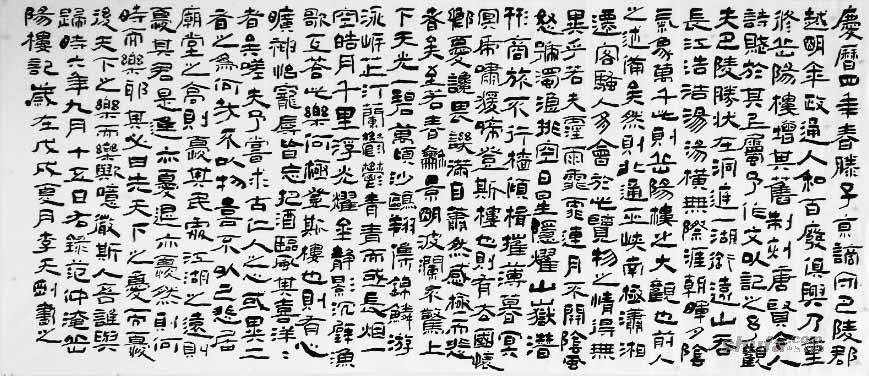 慶曆四年春滕子京謫守巴陵郡
越明年政通人和百廢俱興乃重
修岳陽樓增其舊制刻唐賢今人
詩賦於其上屬予作文以記之予觀
夫巴陵勝狀在洞庭一湖銜遠山吞
長江浩浩湯湯橫無際涯朝暉夕陰
氣象萬千此則岳陽樓之大觀也前人
之述備矣然則北通巫峽南極瀟湘
遷客騷人多會於此覽物之情得無
異乎若夫霪雨霏霏連月不開陰風
怒號濁浪排空日星隱耀山嶽潛
形商旅不行檣傾楫摧薄暮冥
冥虎嘯猨啼登斯樓也則有去國懷
鄉憂讒畏譏滿目蕭然感極而悲
者矣至若春龢景明波瀾不驚上
下天光一碧萬頃沙鷗翔集錦鱗游
泳岸芷汀蘭鬱鬱青青而或長烟一
空皓月千里浮光耀金靜影沉璧漁
歌互答此樂何極登斯樓也則有心
曠神怡寵辱皆忘把酒臨風其喜洋洋
者矣嗟夫予嘗求古仁人之心或異二
者之為何哉不以物喜不以己悲居
廟堂之高則憂其民處江湖之遠則
憂其君是進亦憂退亦憂然則何
時而樂耶其必曰先天下之憂而憂
後天下之樂而樂歟噫微斯人吾誰與
歸時六年九月十五日右錄范仲淹岳
陽樓記歲在戊戌夏月李天剛書之